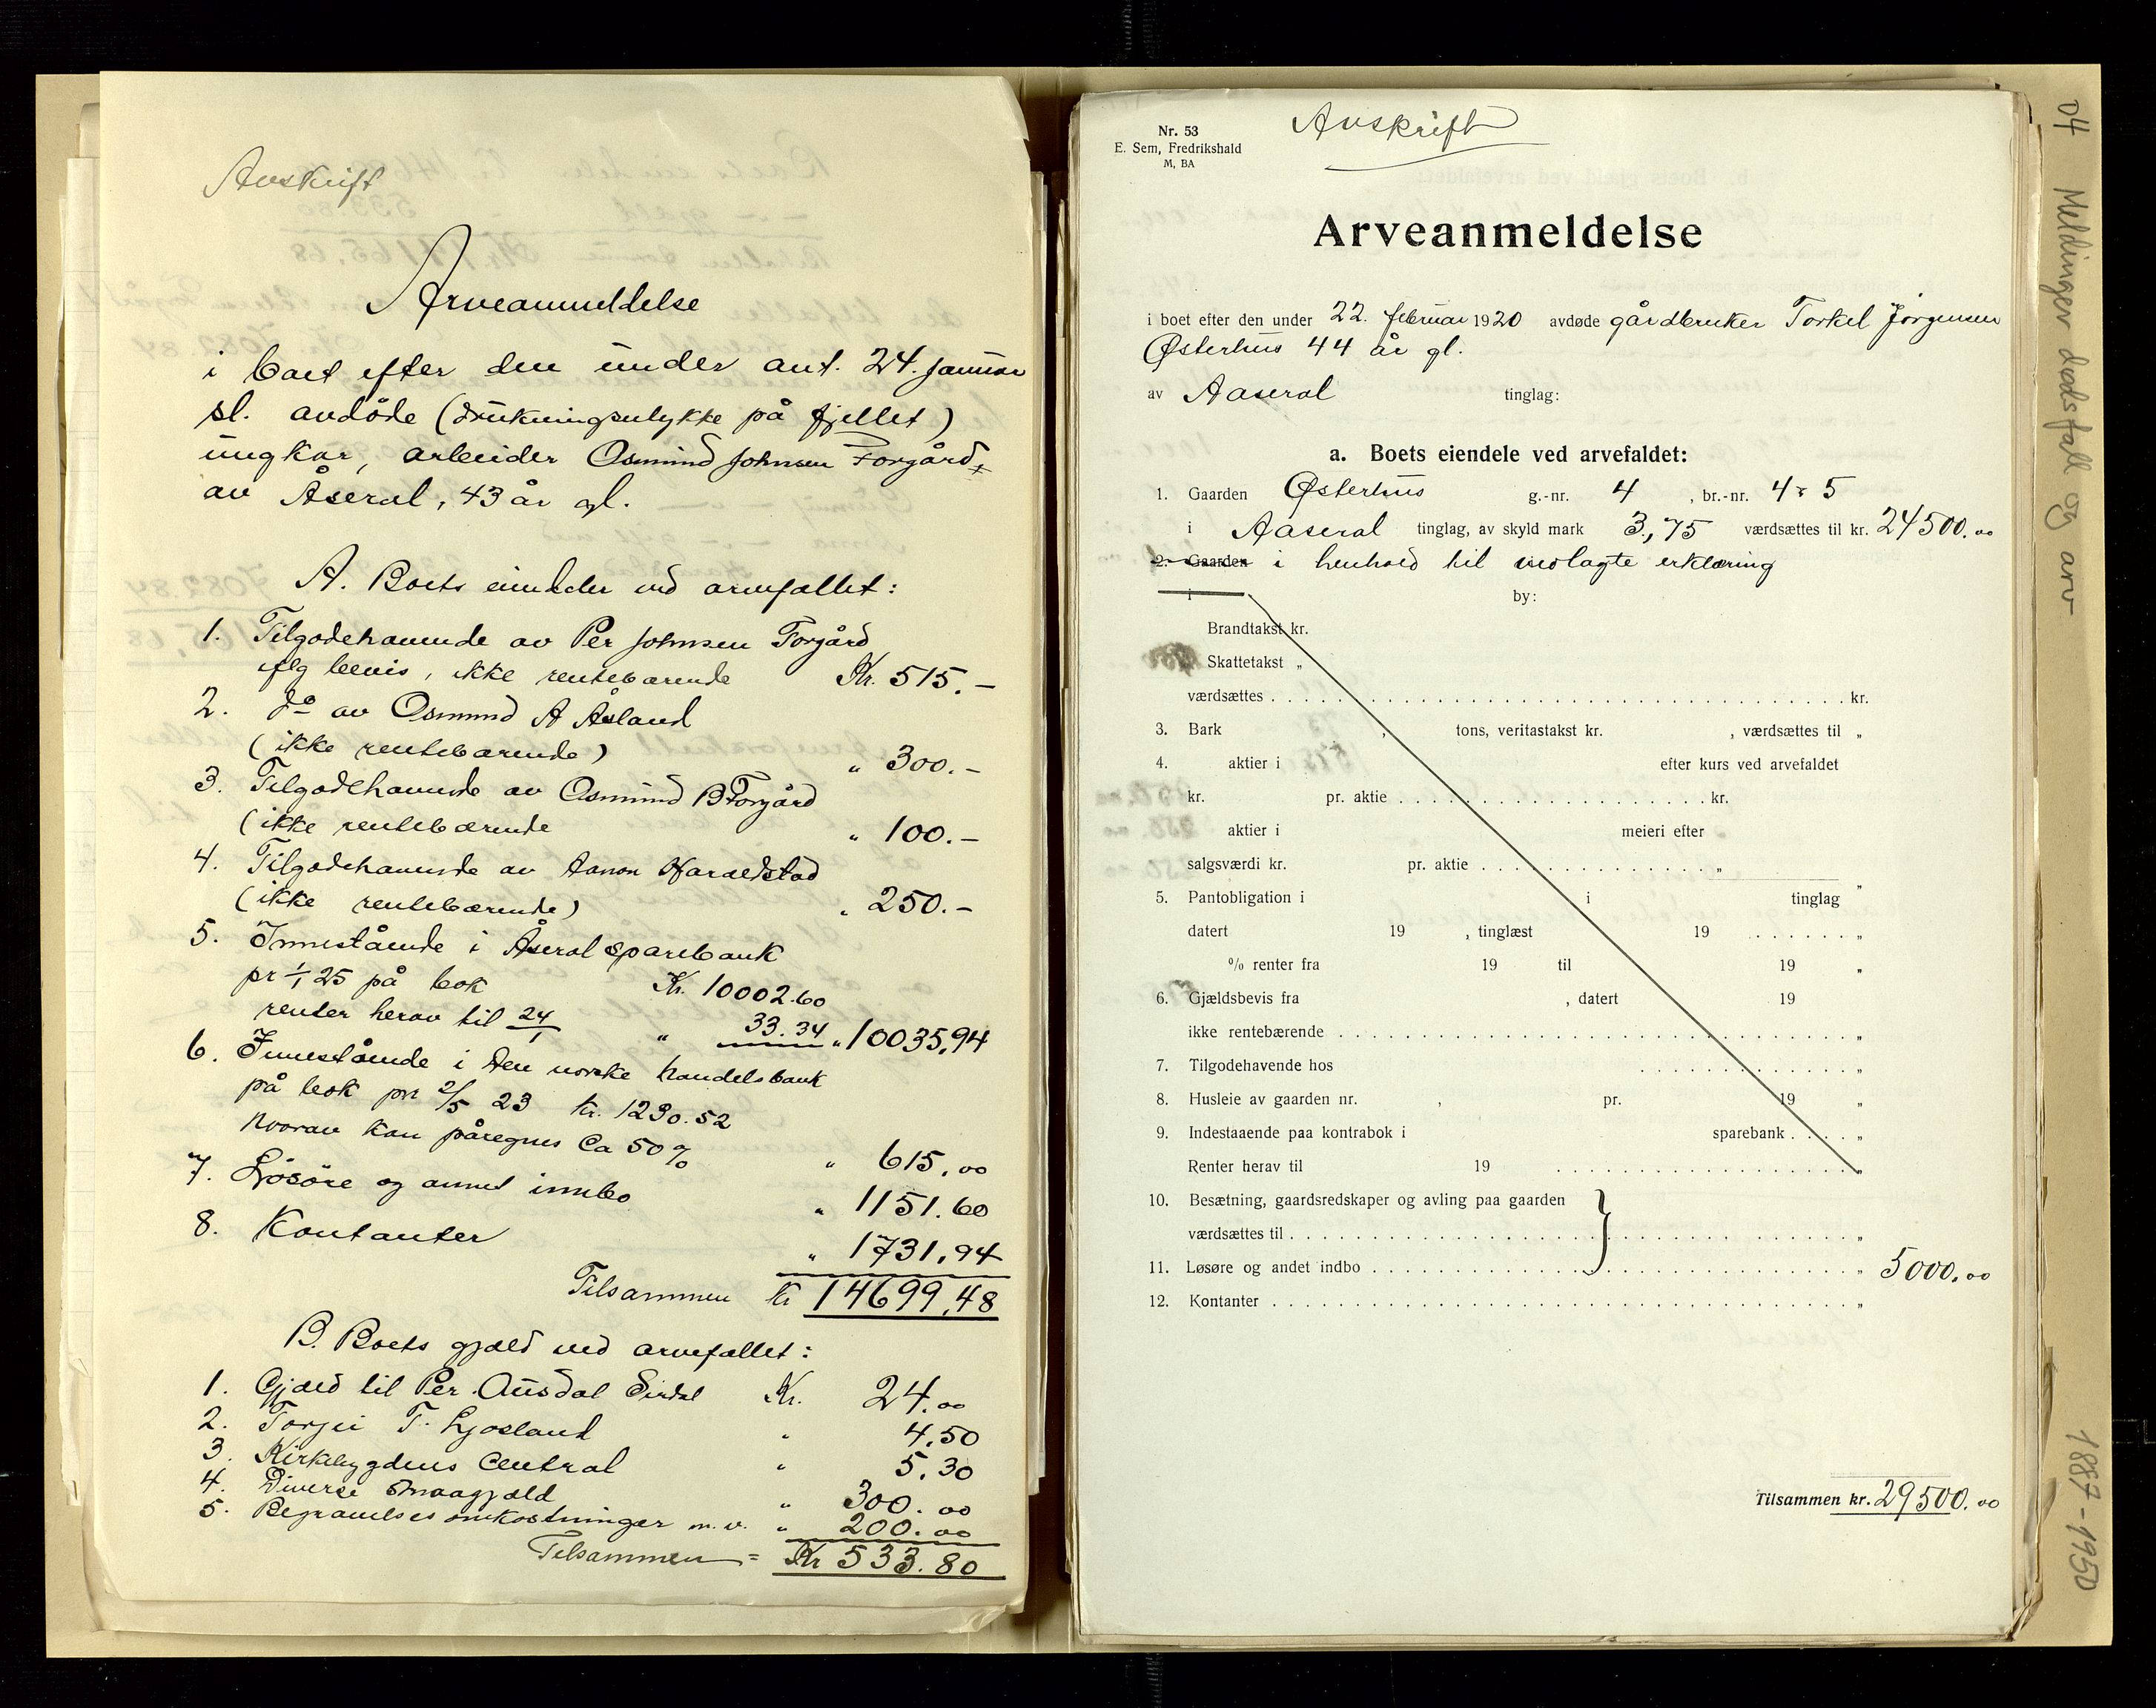 Avskrift
Arveanmeldelse
i boet efter den under ant. 24. januar
sl. avdøde (drukningsulykke på fjellet)
ungkar, arbeider Osmund Johnsen Forgård
av Åseral, 43 år gl.
A. Boets eiendeler ved arvefallet:
1. Tilgodehavende av Per Johnsen Forgård
flg bevis, ikke rentebærende Kr. 515.-
2. do av Osmund A Åsland
(ikke rentebærende) " 300.-
3. Tilgodehavende av Osmund B Forgård
(ikke rentebærende " 100.-
4. Tilgodehavende av Aanon Haraldstad
(ikke rentebærende) " 250.-
5. Innestående i Åseral sparebank
pr 1/1 25 på bok Kr. 10002.60
renter herav til 24/1 " 33.34 " 10035,94
6. Innestående i Den norske handelsbank
på bok pr 2/5 23 kr. 1230.52
hvorav kan påregnes ca 50% " 615,00
7. Løsøre og annet innbo " 1151.60
8. Kontanter " 1731,94
Tilsammen kr 14699,48
B. Boets gjæld ved arvefallet:
1. Gjæld til Per Ousdal Sirdal Kr. 24.00
2. Torjei T. Ljosland " 4,50
3. Kirkebygdens Central " 5.30
4. Diverse smaagjæld " 300.00
5. Begravelsesomkostninger m.v. " 200.00
Tilsammen = Kr 533.80
Nr. 53
E. Sem, Fredrikshald
M, BA
Avskrift
Arveanmeldelse
i boet efter den under 22. februar 1920 avdøde gårdbruker Torkel Jørgensen
Østerhus 44 år gl.
av Aaseral tinglag:
a. Boets eiendele ved arvefaldet:
1. Gaarden Østerhus g.-nr. 4, br.-nr. 4 & 5
i Aaseral tinglag, av skyld mark 3,75 værdsættes til kr. 24500.00
2. Gaarden i henhold til vedlagte erklæring
i by:
Brandtakst kr.
Skattetakst "
værdsættes . . . . kr.
3. Bark , tons, veritastakst kr. , værdsættes til "
4. aktier i efter kurs ved arvefaldet
kr. pr. aktie . . . . kr.
aktier i meieri efter
salgsværdi kr. pr. aktie . . . . "
5. Pantobligation i i tinglag "
datert 19 , tinglæst 19 . . . . "
% renter fra 19 til 19 "
6. Gjældsbevis fra , datert 19
ikke rentebærende . . . . "
7. Tilgodehavende hos . . . . "
8. Husleie av gaarden nr. , pr. 19 "
9. Indestaaende paa kontrabok i sparebank . . . . "
Renter herav til 19 . . . . "
10. Besætning, gaardsredskaper og avling paa gaarden
værdsættes til . . . . "
11. Løsøre og andet indbo . . . . " 5000,00
12. Kontanter . . . . "
Tilsammen kr. 29500.00
04 Meldinger dødsfall og arv 1887-1950